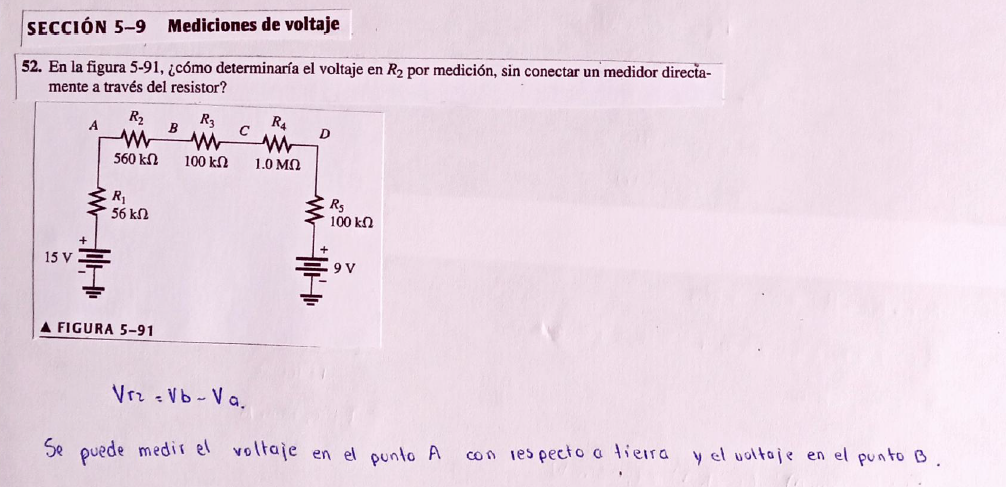 SECCIÓN 5–9 Mediciones de voltaje
52. En la figura 5-91, ¿cómo determinaría el voltaje en R₂ por medición, sin conectar un medidor directa-
mente a través del resistor?
A R₂ B R₃ C R₄ D
560 kΩ 100 kΩ 1.0 MΩ
R₁
56 kΩ
R₅
100 kΩ
+
15 V
–
+
9 V
–
▲ FIGURA 5–91
Vr2 = Vb - Va.
Se puede medir el voltaje en el punto A con respecto a tierra y el voltaje en el punto B.